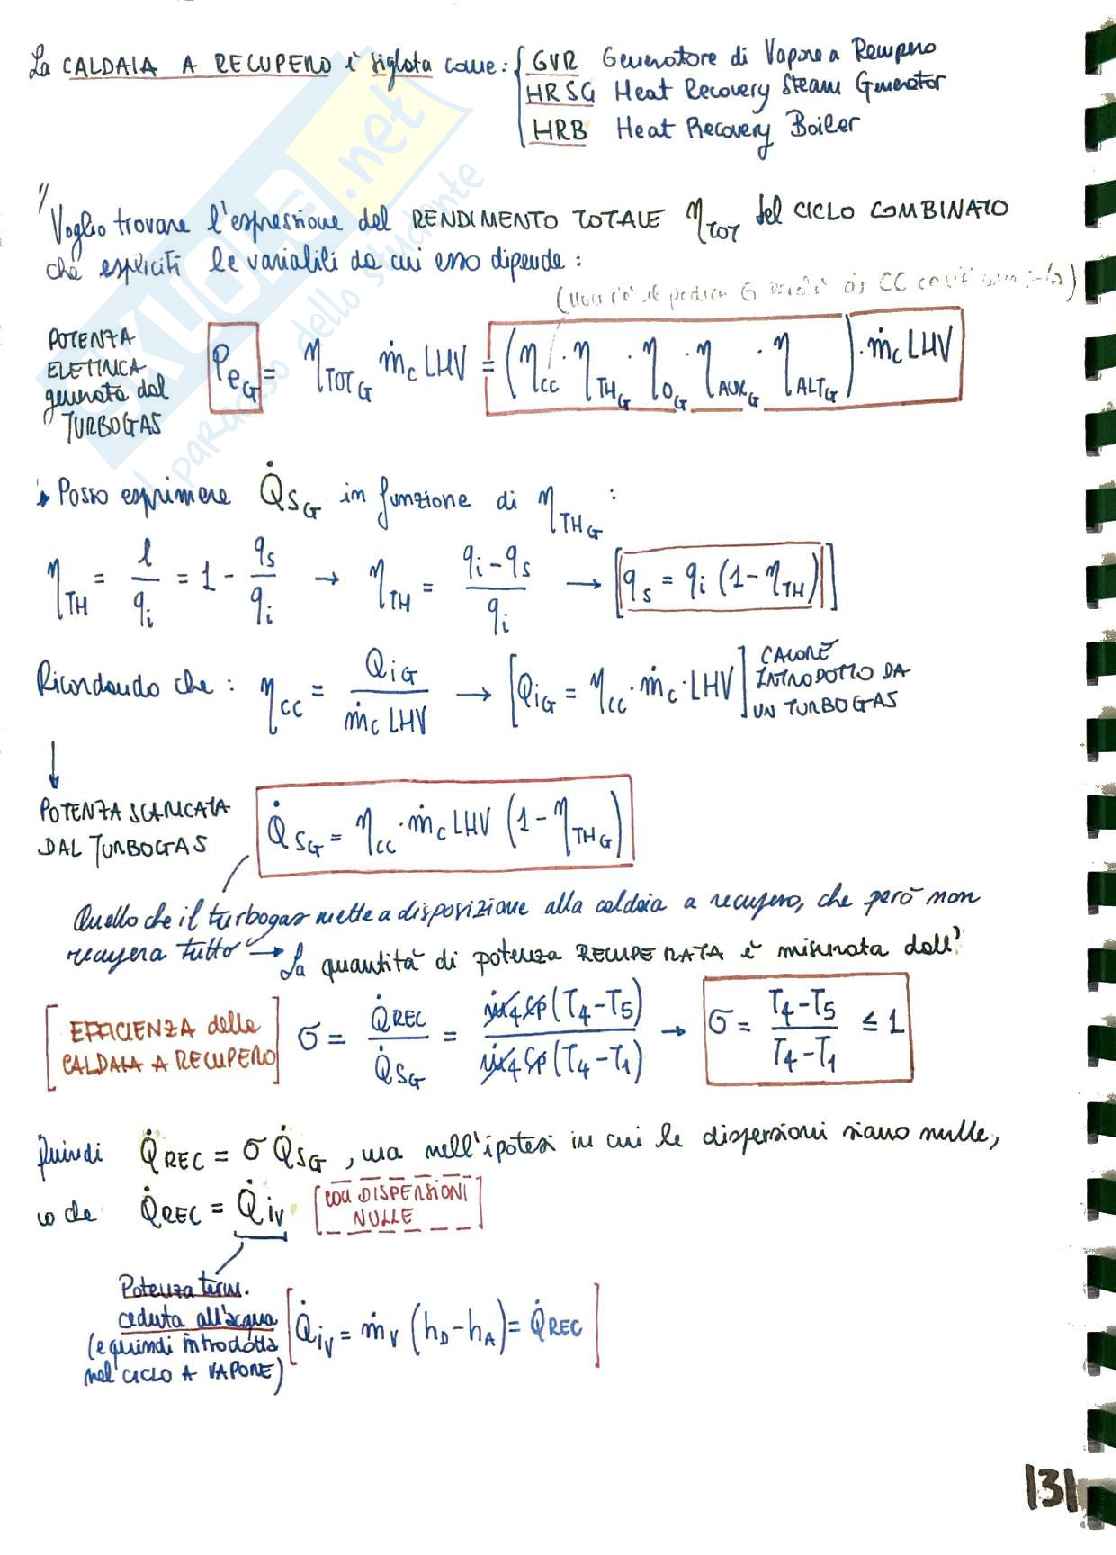 La CALDAIA A RECUPERO è siglata come: { GVR Generatore di Vapore a Recupero
HRSG Heat Recovery Steam Generator
HRB Heat Recovery Boiler
" Voglio trovare l'espressione del RENDIMENTO TOTALE η_TOT del CICLO COMBINATO
che espliciti le variabili da cui esso dipende:
POTENZA ELETTRICA generata dal TURBOGAS P_eG = η_TOT_G ṁ_c LHV = (η_CC · η_TH_G · η_O_G · η_AUX_G · η_ALT_G) · ṁ_c LHV
Posso esprimere Q̇_SG in funzione di η_TH_G :
η_TH = l / q_i = 1 - q_s / q_i → η_TH = (q_i - q_s) / q_i → [q_s = q_i (1 - η_TH)]
Ricordando che: η_CC = Q_iG / ṁ_c LHV → [Q_iG = η_CC · ṁ_c · LHV] CALORE INTRODOTTO DA UN TURBOGAS
↓
POTENZA SCARICATA DAL TURBOGAS Q̇_SG = η_CC · ṁ_c LHV (1 - η_TH_G)
Quello che il turbogas mette a disposizione alla caldaia a recupero, che però non
recupera tutto → La quantità di potenza RECUPERATA è misurata dall'
[EFFICIENZA della CALDAIA A RECUPERO] σ = Q̇_REC / Q̇_SG = ṁ_4 cp (T_4 - T_5) / ṁ_4 cp (T_4 - T_1) → σ = (T_4 - T_5) / (T_4 - T_1) ≤ 1
Quindi Q̇_REC = σ Q̇_SG, ma nell'ipotesi in cui le dispersioni siano nulle,
so che Q̇_REC = Q̇_iV [con DISPERSIONI NULLE]
Potenza term.
ceduta all'acqua
(e quindi introdotta
nel CICLO A VAPORE)
[Q̇_iV = ṁ_V (h_D - h_A) = Q̇_REC]
131
SKUOLA.net
il paradiso dello studente